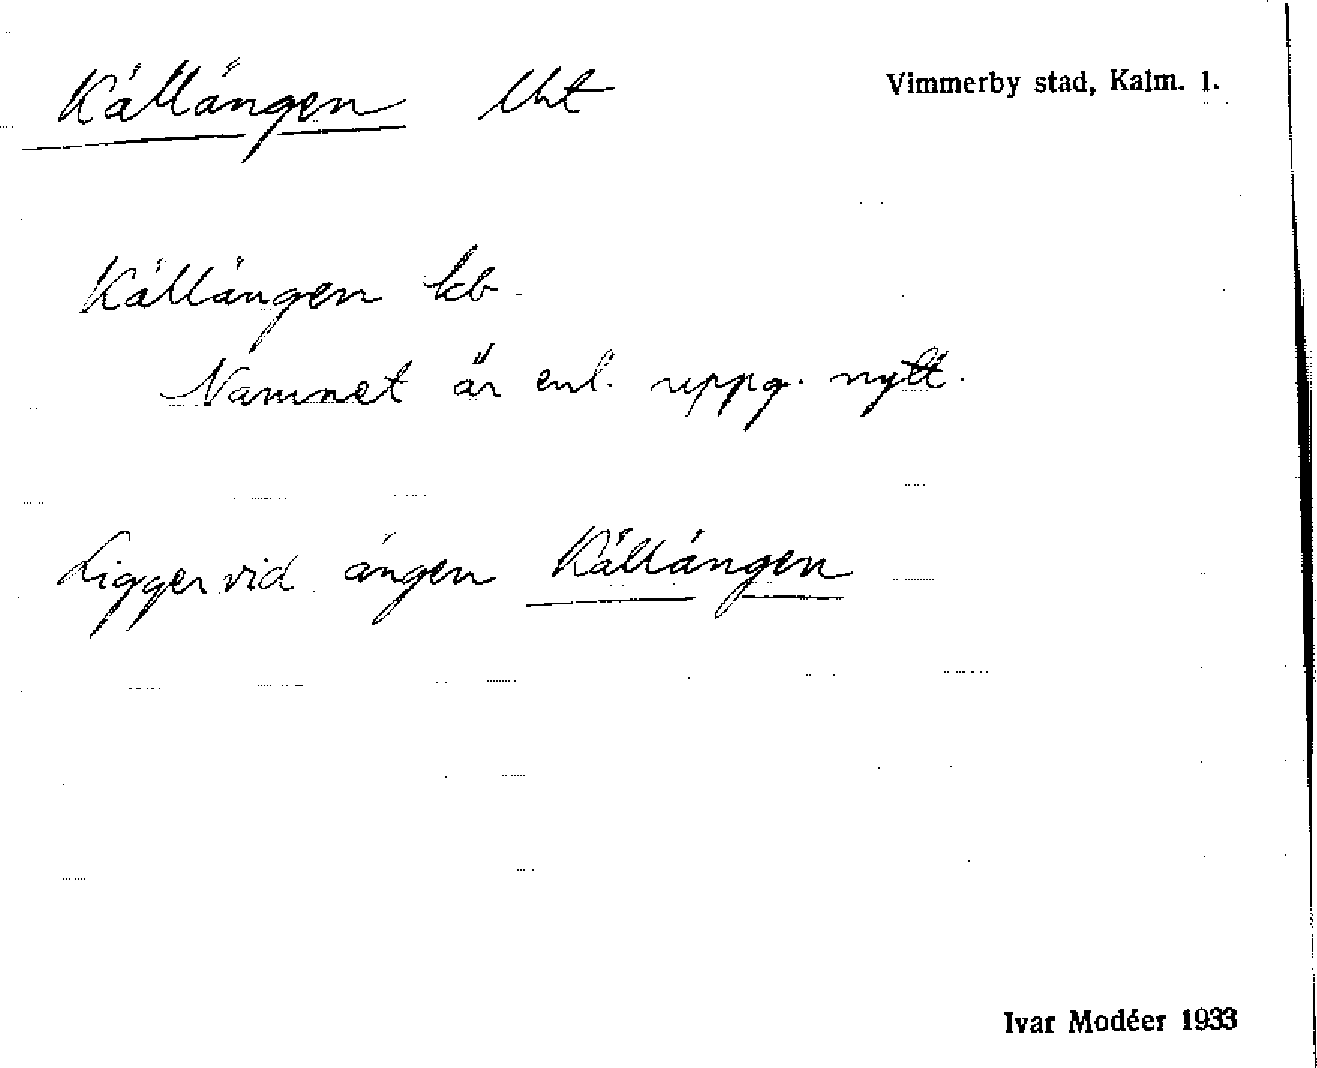 Källängen lht Vimmerby stad, Kalm. l.
Källängen kb
Namnet är enl. uppg. nytt.
Ligger vid ängen Källängen
Ivar Modéer 1933